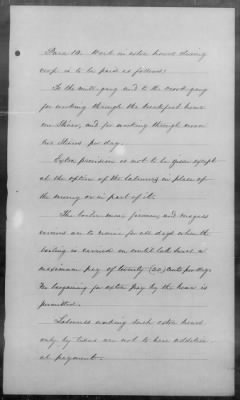 Para 19. Work in extra hours during
crop is to be paid as follows:
To the mill-gang and to the crook-gang
for working through the breakfast hour
one Stiver, and for working through noon
two Stivers per day.
Extra provision is not to be given except
at the option of the laborers in place of
the money or a part of it.
The boilermen firemen and magass
carriers are to receive for all days when the
boiling is carried on until late hours a
maximum pay of twenty (20) cents per day.
No bargaining for extra pay by the hour is
permitted.
Laborers working such extra hours
only by turns are not to have additional
payment.